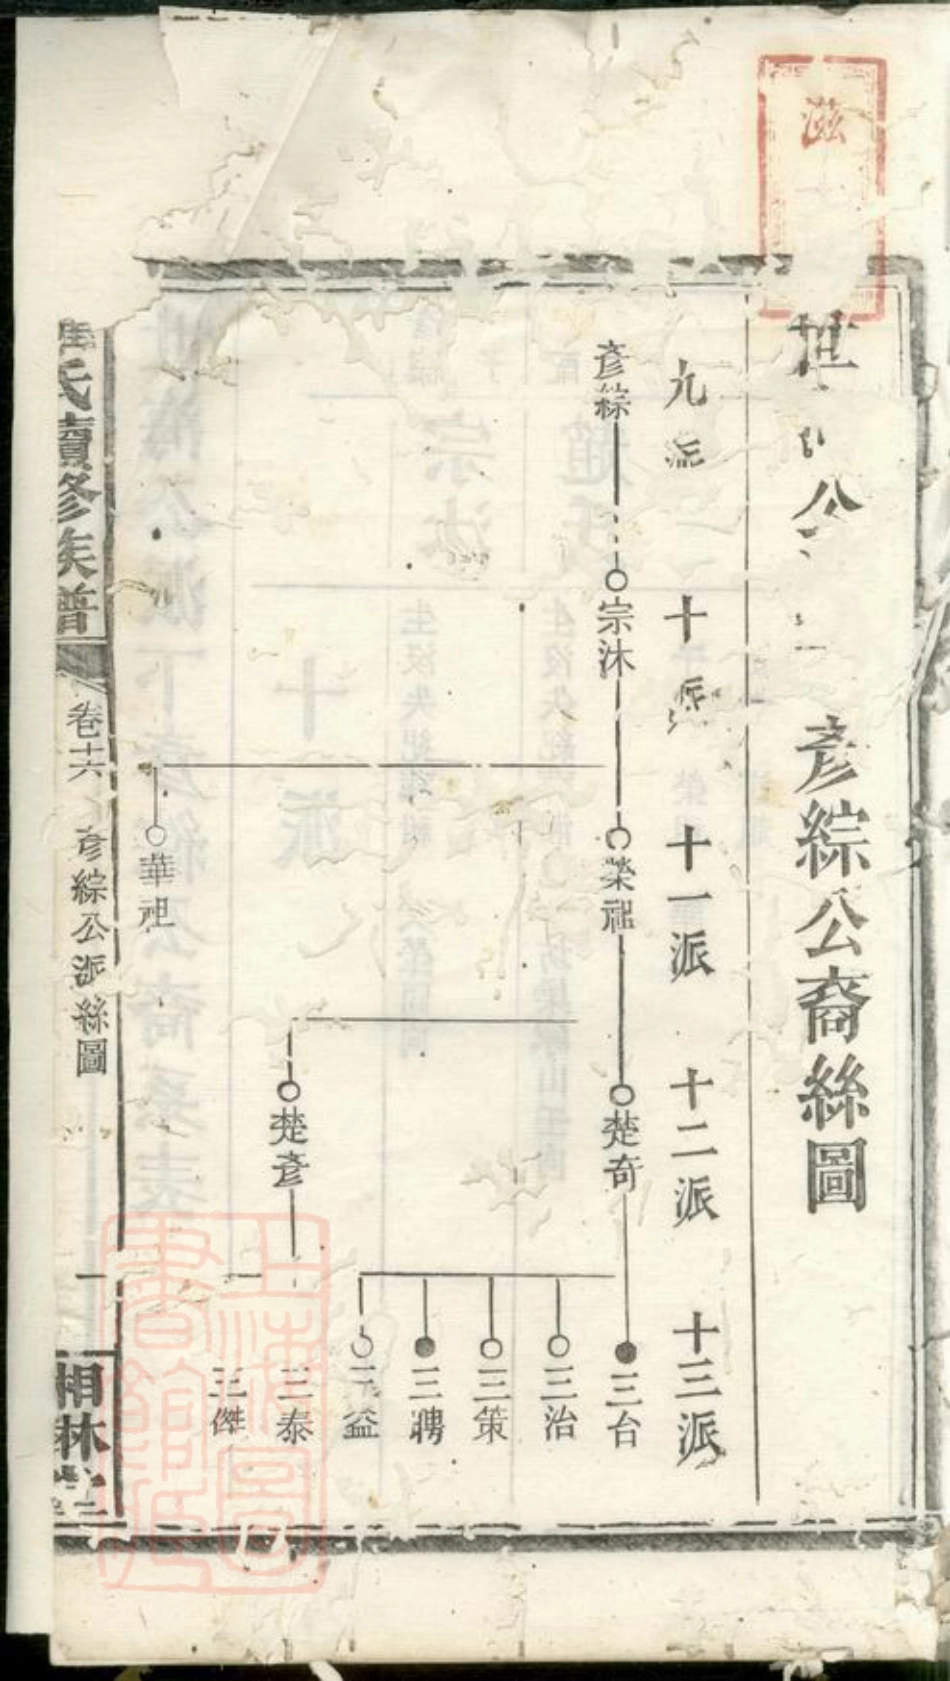 滋
世 公 彥綜公裔絲圖
九派
十派
十一派
十二派
十三派
彥綜
宗沐
榮祖
楚奇
三台
三治
三策
三聘
三益
楚彥
三泰
三傑
華祖
氏續修族譜
卷十六
彥綜公派絲圖
相林
上海圖書館藏